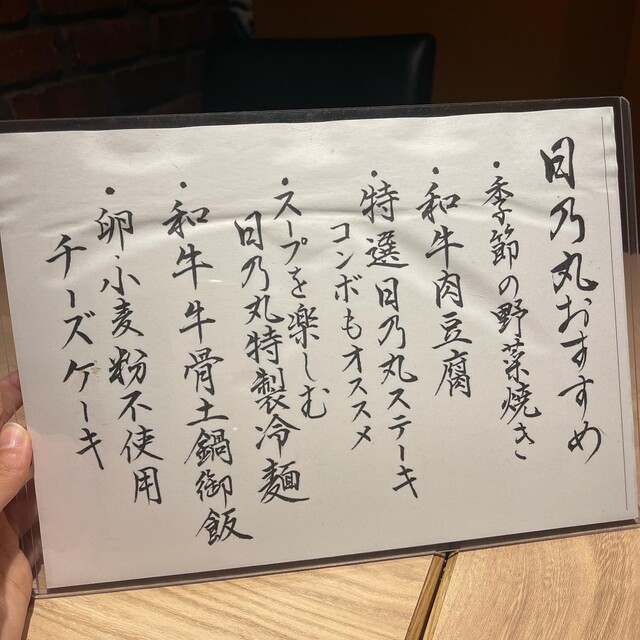 日乃丸おすすめ
・季節の野菜焼き
・和牛肉豆腐
・特選日乃丸ステーキ
コンボもオススメ
・スープを楽しむ
日乃丸特製冷麺
・和牛牛骨土鍋御飯
・卵小麦粉不使用
チーズケーキ